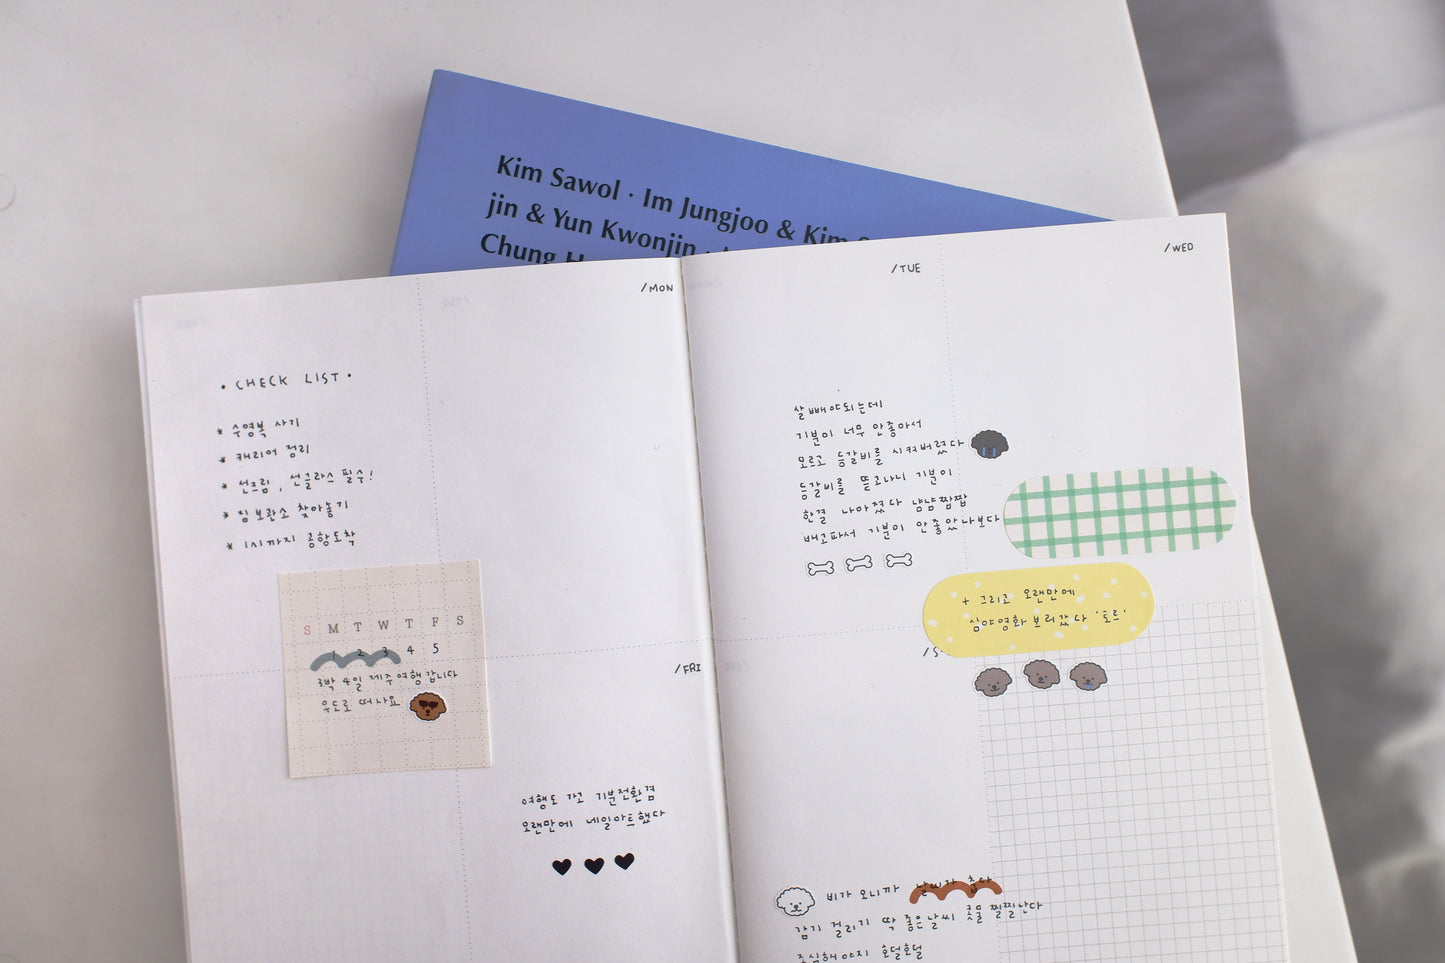 Kim Sawol · Im Jungjoo & Kim
jin & Yun Kwonjin ·
Chung
/MON
• CHECK LIST •
* 수영복 사기
* 캐리어 정리
* 선크림, 선글라스 필수!
* 짐 보관소 찾아놓기
* 1시까지 공항도착
S M T W T F S
1 2 3 4 5
3박 4일 제주여행 갑니다
우도로 떠나요
/FRI
여행도 가고 기분전환겸
오랜만에 네일아트했다
/TUE
/WED
살 빼야되는데
기분이 너무 안좋아서
모르고 등갈비를 시켜버렸다
등갈비를 뜯고나니 기분이
한결 나아졌다 냠냠짭짭
배고파서 기분이 안좋았나보다
+ 그리고 오랜만에
심야영화 보러갔다 '토르'
비가 오니까 날씨가 춥다
감기 걸리기 딱 좋은날씨 콧물 찔찔난다
조심해야지 호덜호덜